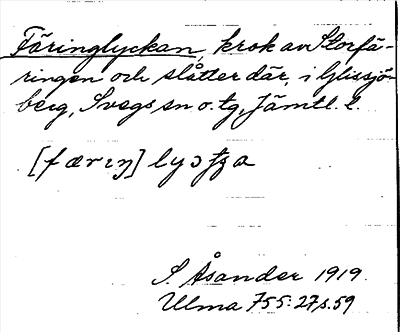 Föringlyckan, krok av Storfö-
ringen och slåtter där, i Glissjö-
berg, Svegs sn o. tg, Jämtl. l.
[færıŋ] ly
S. Åsander 1919.
Ulma 755:27, s. 59